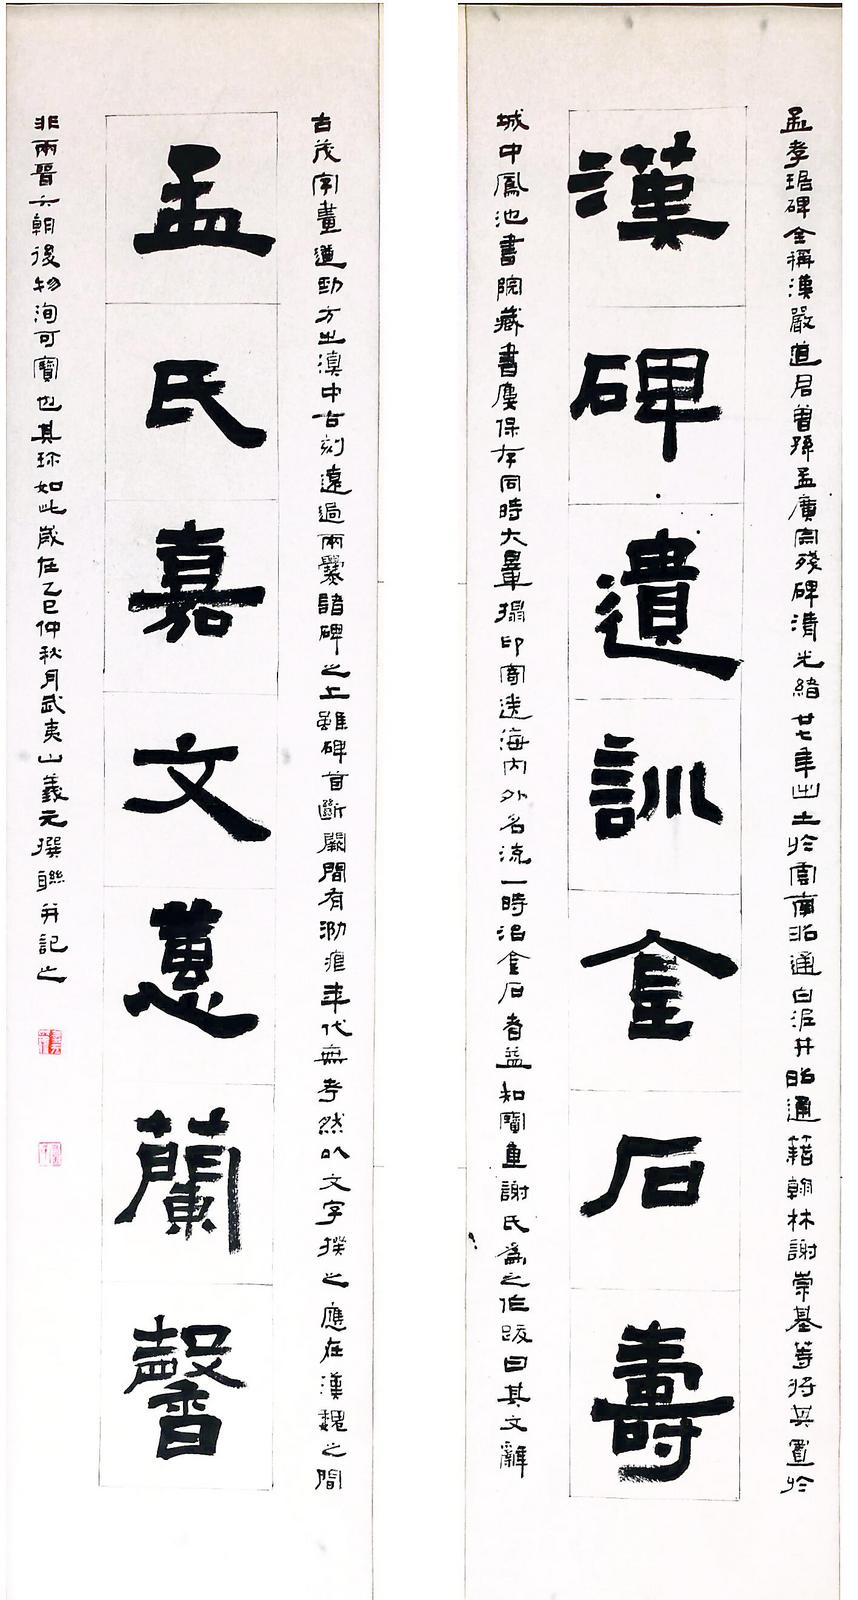 孟孝琚碑全稱漢嚴道君曾孫孟廣宗殘碑清光緒廿七年出土於雲南昭通白泥井昭通籍翰林謝崇基等將其置於
漢碑遺訓金石壽
城中鳳池書院藏書廔保存同時大量搨印寄送海内外名流一時治金石者益知寶重謝氏爲之作跋曰其文辭
古茂字畫遒勁方之滇中古刻遠過兩爨諸碑之上雖碑首斷闕間有泐痕年代無考然以文字揆之應在漢魏之間
孟氏嘉文蕙蘭馨
非兩晉六朝後物洵可寶也其珎如此歲在乙巳仲秋月武夷山義元撰聯并記之